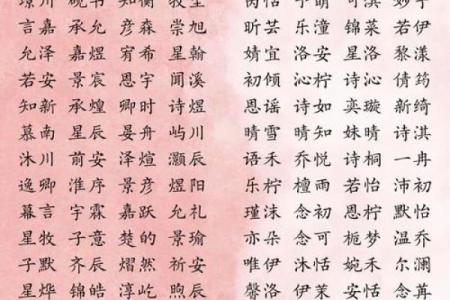 川 书 知衡 牧
言嘉 承允 彦森 崇旭 昕芸 乐潼 锦菜 若伊
允泽 嘉煜 宥希 星翰 婧宜 洛安 星洛 黎漾
若安 景宸 思宇 闻溪 初倾 沁柠 诗沁 倩筠
知新 承煌 卿时 诗煜 思谣 诗如 奕璇 新绮
慕南 星辰 晏舟 屿川 晴雪 晴知 妹晴 诗淇
沐川 前安 泽煊 灏辰 语禾 乔悦 诗桐 一冉
逸卿 淮序 景彦 煜阳 乐柠 檀雨 若怡 沛初
幕言 宇霖 嘉跃 允礼 瑾沫 念初 思柠 默怡
星牧 子意 楚的 景瑜 亦朵 念可 栀梦 温乔
子默 齐辰 熠然 祈安 唯伊 沐恬 婉禾 尔澜
星烨 锦皓 淳屹 煦辰 馨洛 伊芙 安恬 念